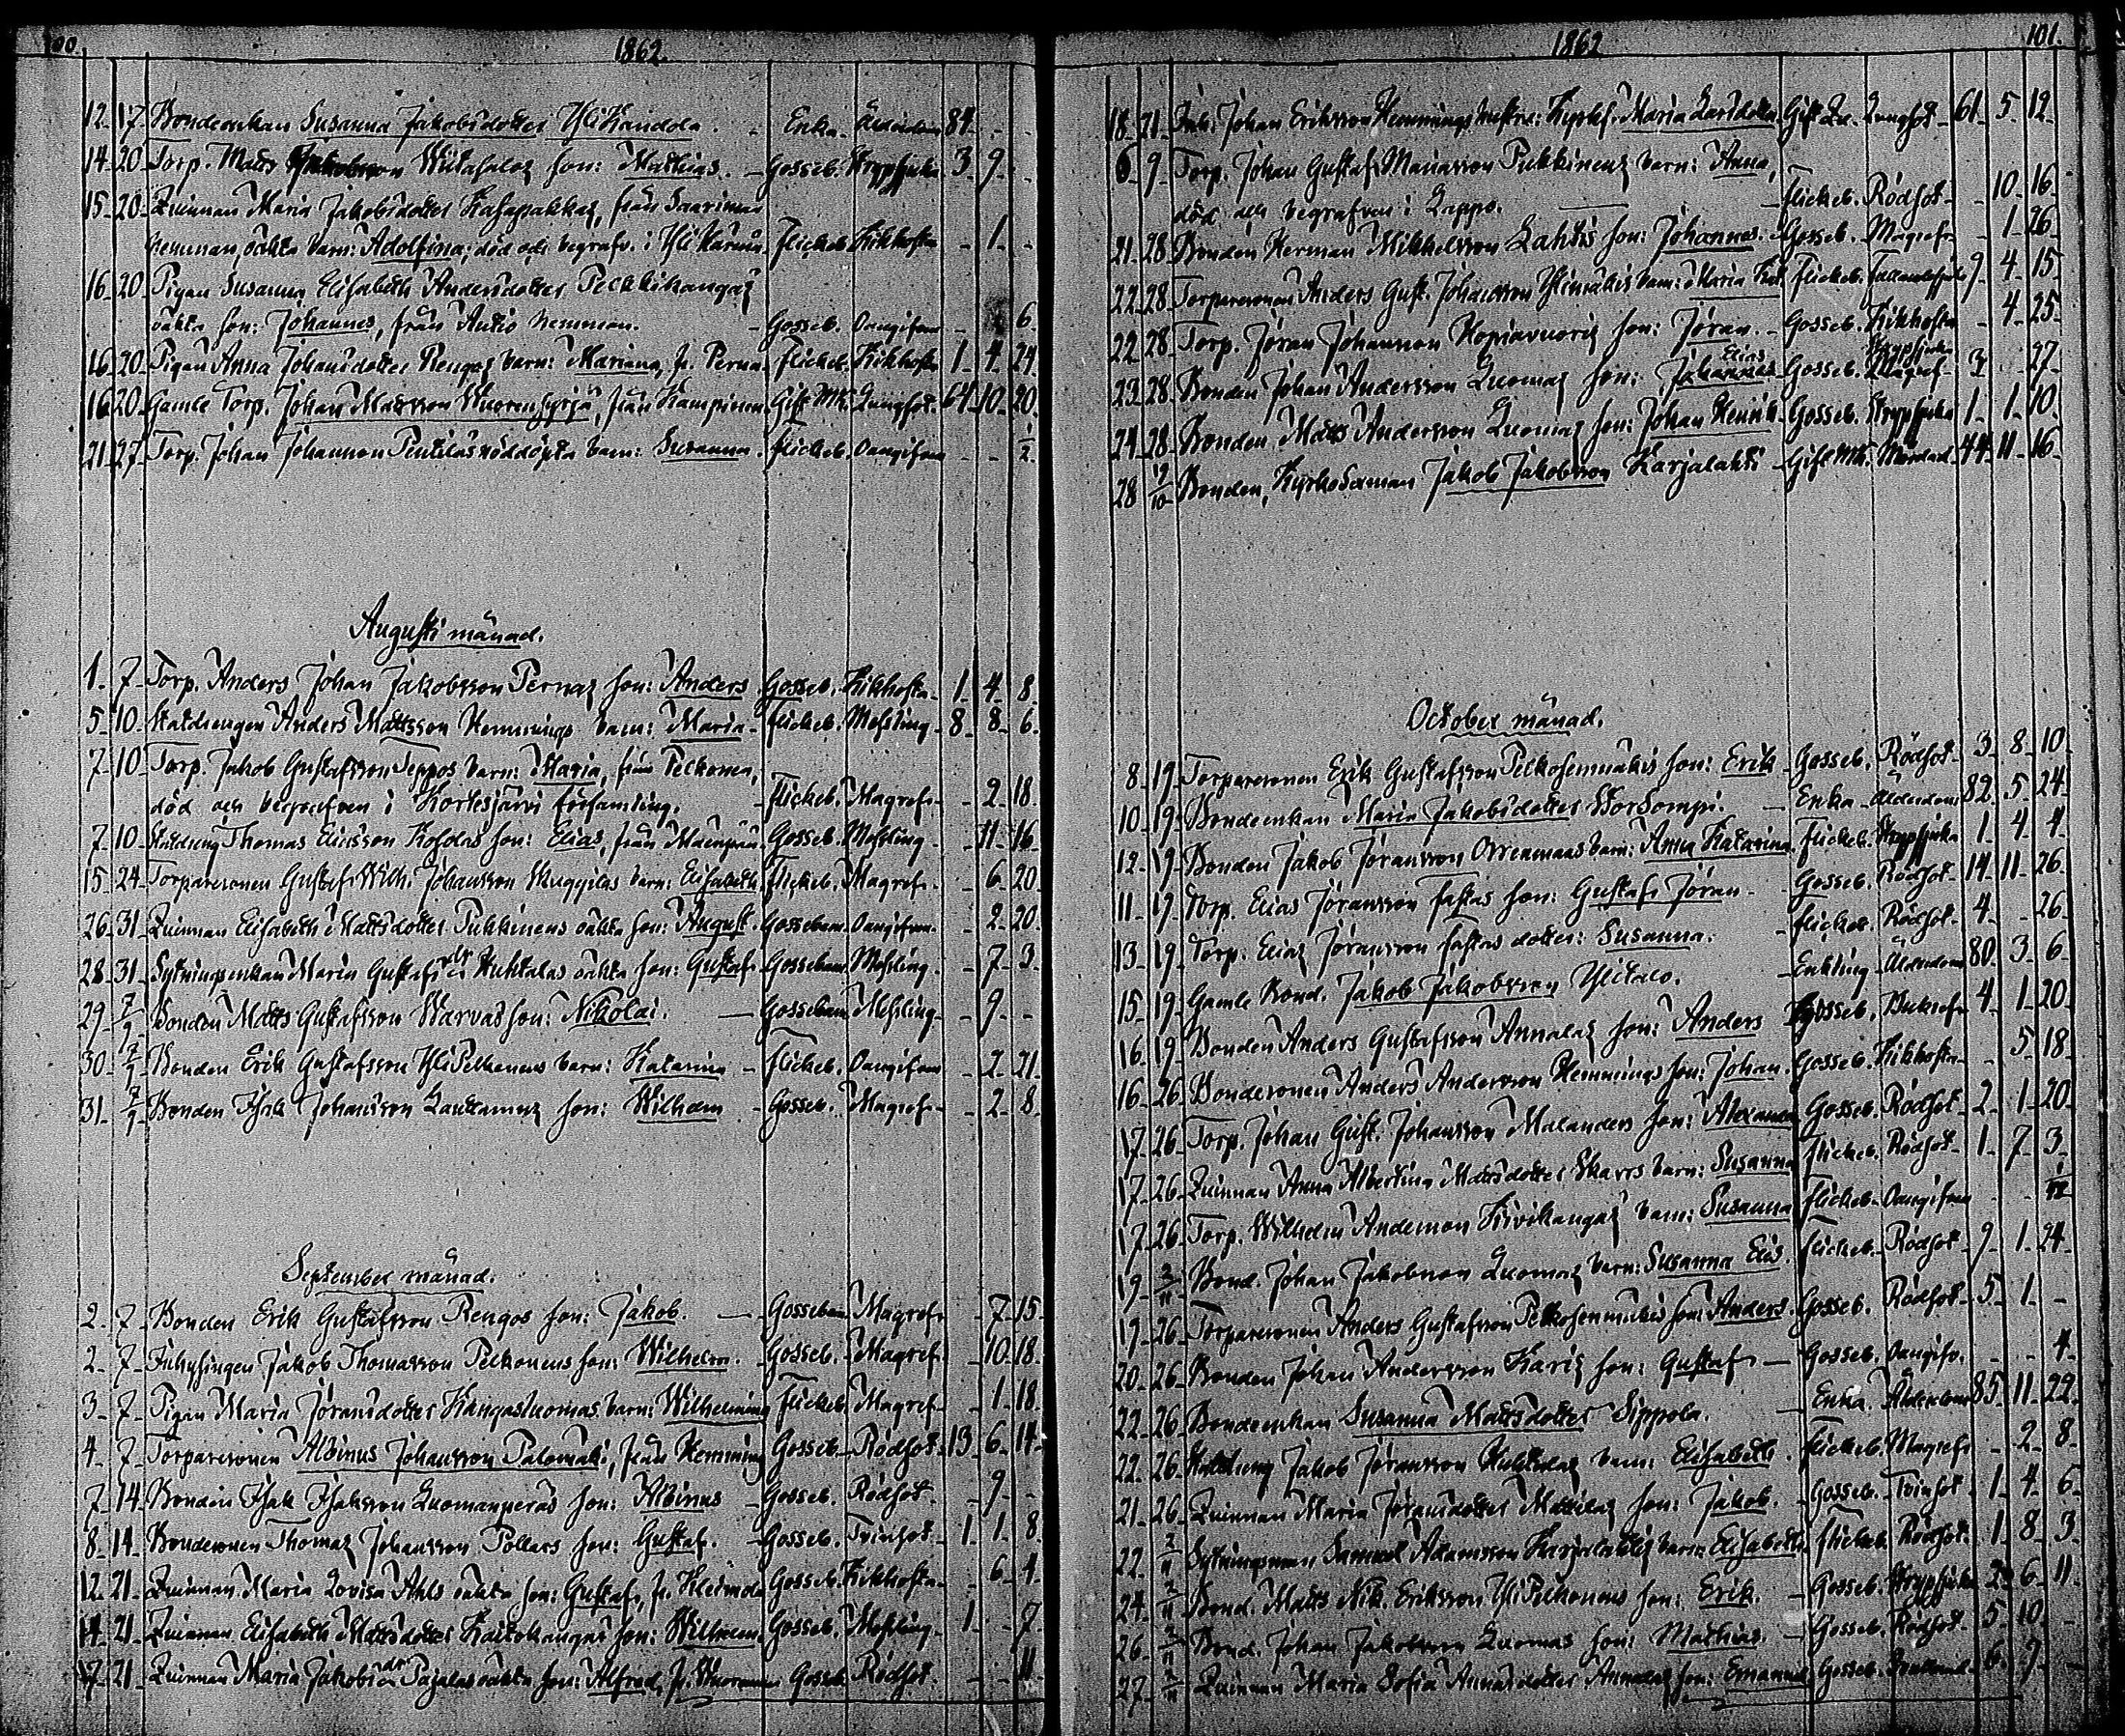 100.
1862.
12. 17. Bondeenkan Susanna Jakobsdotter Yli Kandola. - Enka. Ålderdom 84. - -
14. 20. Torp. Matts son: Mathias. - Gosseb. Strypsjuka 3. 9. -
15. 20. Quinnan Maria Jakobsdotter från Saarimaa
hemman, oäkta barn: Adolfina; död och begrafv. i Flickeb. Kikhosta - 1. -
16. 20. Pigan Susanna Elisabeth Andersdotter Pelkkikangas
oäkta son: Johannes, från Antio hemman. - Gosseb. Oangifven - 6.
16. 20. Pigan Anna Johansdotter Rengos barn: Mariana, fr. Perna. Flickeb. Kikhosta 1. 4. 24.
16. 20. Gamle Torp. Johan Mattsson från Kampinen. Gift Mk. Lungsot. 64. 10. 20.
21. 27. Torp. Johan Johansson Penttiläs nöddöpta barn: Susanna. Flickeb. Oangifven - - ½.
Augusti månad.
1. 7. Torp. Anders Johan Jakobsson Pernas son: Anders Gosseb. Kikhosta 1. 4. 8.
5. 10. Statdrengen Anders Mattsson Hemmings barn: Maria. Flickeb. Messling 8. 8. 6.
7. 10. Torp. Jakob Gustafsson Seppos barn: Maria, från Pelkonen,
död och begrafven i Kortesjärvi församling. - Flickeb. Magref. - 2. 18.
7. 10. Thomas Eliasson son: Elias, från Gosseb. Messling - 11. 16.
15. 24. Torparesonen Gustaf Wilh. Johansson barn: Elisabeth Flickeb. Magref. - 6. 20.
26. 31. Quinnan Elisabeth Mattsdotter Pukkinens oäkta son: August. Gossebarn. Oangifven. - 2. 20.
28. 31. Sytningsenkan Maria Gustafsdtr Huhtalas oäkta son: Gustaf. Gossebarn. Messling. - 7. 3.
29. 7/9 Bonden Matts Gustafsson Warvas son: Nikolai. - Gossebarn Messling. - 9. -
30. 7/9 Bonden Erik Gustafsson Yli Pelkonens barn: Katarina - Flickeb. Oangifven - 2. 21.
31. 7/9 Bonden Isak Johansson Lautamus son: Wilhelm - Gosseb. Magref. - 2. 8.
September månad.
2. 7. Bonden Erik Gustafsson Rengos son: Jakob. - Gossebarn Magref. - 7. 15.
2. 7. Inhysingen Jakob Thomasson Pelkonens son: Wilhelm. - Gosseb. Magref. - 10. 18.
3. 7. Pigan Maria Jöransdotter Kangasluomas barn: Wilhelmina Flickeb. Magref. - 1. 18.
4. 7. Torparesonen Albinus Johansson Palomäki, från Hemming Gosseb. Rödsot. 13. 6. 14.
7. 14. Bonden Isak Isaksson Luomanperäs son: Albinus - Gosseb. Rödsot. - 9. -
8. 14. Bondesonen Thomas Johansson Pollars son: Gustaf. - Gosseb. Tvinsot. 1. 1. 8.
12. 21. Quinnan Maria Lovisa Ahls oäkta son: Gustaf, fr. Gosseb. Kikhosta. - 6. 4.
14. 21. Quinnan Elisabeth Mattsdotter son: Wilhelm. Gosseb. Messling. 1. - 7.
17. 21. Quinnan Maria Jakobsdtr oäkta son: Alfred, fr. Gosseb. Rödsot. - - 11.
1862
101.
18. 21. Inh. Johan Eriksson Hemmings hustru: Maria Larsdotter Gift Qu. Lungsot 61. 5. 12.
6. 9. Torp. Johan Gustaf Mariasson Pukkinens barn: Anna,
död och begrafven i Lappo. - Flickeb. Rödsot - 10. 16.
21. 28. Bonden Herman Mikkelsson Lahtis son: Johannes. Gosseb. Magref. - 1. 26.
22. 28. Torparesonen Anders Gust. Johansson barn: Maria Flickeb. 9. 4. 15.
22. 28. Torp. Jöran Johansson son: Jöran. - Gosseb. Kikhosta - 4. 25.
23. 28. Bonden Johan Andersson Luomas son: Elias Gosseb. Strypsjuka 3. - 27.
24. 28. Bonden Matts Andersson Luomas son: Johan Henrik. Gosseb. Strypsjuka 1. 1. 10.
28. 19/10 Bonden, Jakob Jakobsson Karjalahti Gift Mk. Mördad. 44. 11. 16.
October månad.
8. 19. Torparesonen Erik Gustafsson Pelkosenmäkis son: Erik - Gosseb. Rödsot. 3. 8. 10.
10. 19. Bondeenkan Maria Jakobsdotter - Enka. Ålderdom 82. 5. 24.
12. 19. Bonden Jakob Jöransson Orrenmaas barn: Anna Katarina. Flickeb. Strypsjuka 1. 4. 4.
11. 19. Torp. Elias Jöransson Fastas son: Gustaf Jöran. - Gosseb. Rödsot. 14. 11. 26.
13. 19. Torp. Elias Jöransson Fastas dotter: Susanna. - Flickeb. Rödsot. 4. - 26.
15. 19. Gamle Bond. Jakob Jakobsson Ylitalo. - Enkling. Ålderdom 80. 3. 6.
16. 19. Bonden Anders Gustafsson Annalas son: Anders Gosseb. Bukref. 4. 1. 20.
16. 26. Bondesonen Anders Andersson Hemmings son: Johan. Gosseb. Kikhosta - 5. 18.
17. 26. Torp. Johan Gust. Johansson Malanders son: Alexander Gosseb. Rödsot. 2. 1. 20.
17. 26. Quinnan Anna Albertina Mattsdotter Skarrs barn: Susanna Flickeb. Rödsot. 1. 7. 3.
17. 26. Torp. Wilhelm Andersson Kivikangas barn: Susanna Flickeb. Oangifven - -
19. 2/11 Bond. Johan Jakobsson Luomas barn: Susanna Elis. Flickeb. Rödsot. 9. 1. 24.
19. 26. Torparesonen Anders Gustafsson Pelkosenmäkis son: Anders. Gosseb. Rödsot. 5. 1. -
20. 26. Bonden Johan Andersson Karis son: Gustaf - Gosseb. Oangifv. - - 4.
22. 26. Bondeenkan Susanna Mattsdotter Sippola. - Enka. Ålderdom 85. 11. 22.
22. 26. Jakob Jöransson Huhtalas barn: Elisabeth. Flickeb. Magref. - 2. 8.
21. 26. Quinnan Maria Jöransdotter Mattilas son: Jakob. - Gosseb. Tvinsot. 1. 4. 6.
22. 2/11 Sytningsman Samuel Adamsson Karjalahtis barn: Elisabeth. Flickeb. Rödsot. 1. 8. 3.
24. 2/11 Bond. Matts Nik. Eriksson Yli Pelkonens son: Erik. - Gosseb. Strypsjuka 2. 6. 11.
26. 2/11 Bond. Johan Jakobsson Luomas son: Mathias. - Gosseb. Rödsot. 5. 10. -
27. 2/11 Quinnan Maria Sofia Annalas son: Emanuel Gosseb. 6. 9. -